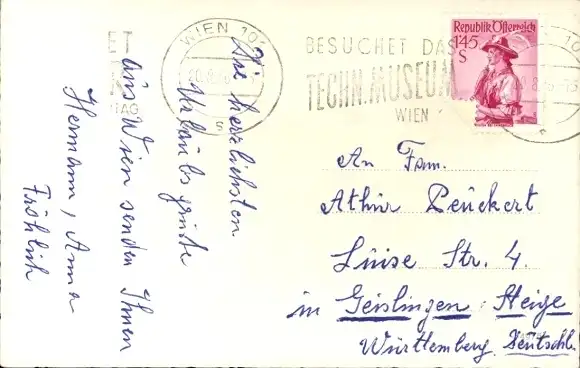 Die herzlichsten
Urlaubsgrüße
aus Wien senden Ihnen
Hermann, Anna
Fröhlich
WIEN 10
BESUCHET DAS
TECHN. MUSEUM
WIEN
Republik Österreich
1.45
S
An Fam.
Athur Peuckert
Luise Str. 4.
in Geislingen Steige
Württemberg. Deutschl.